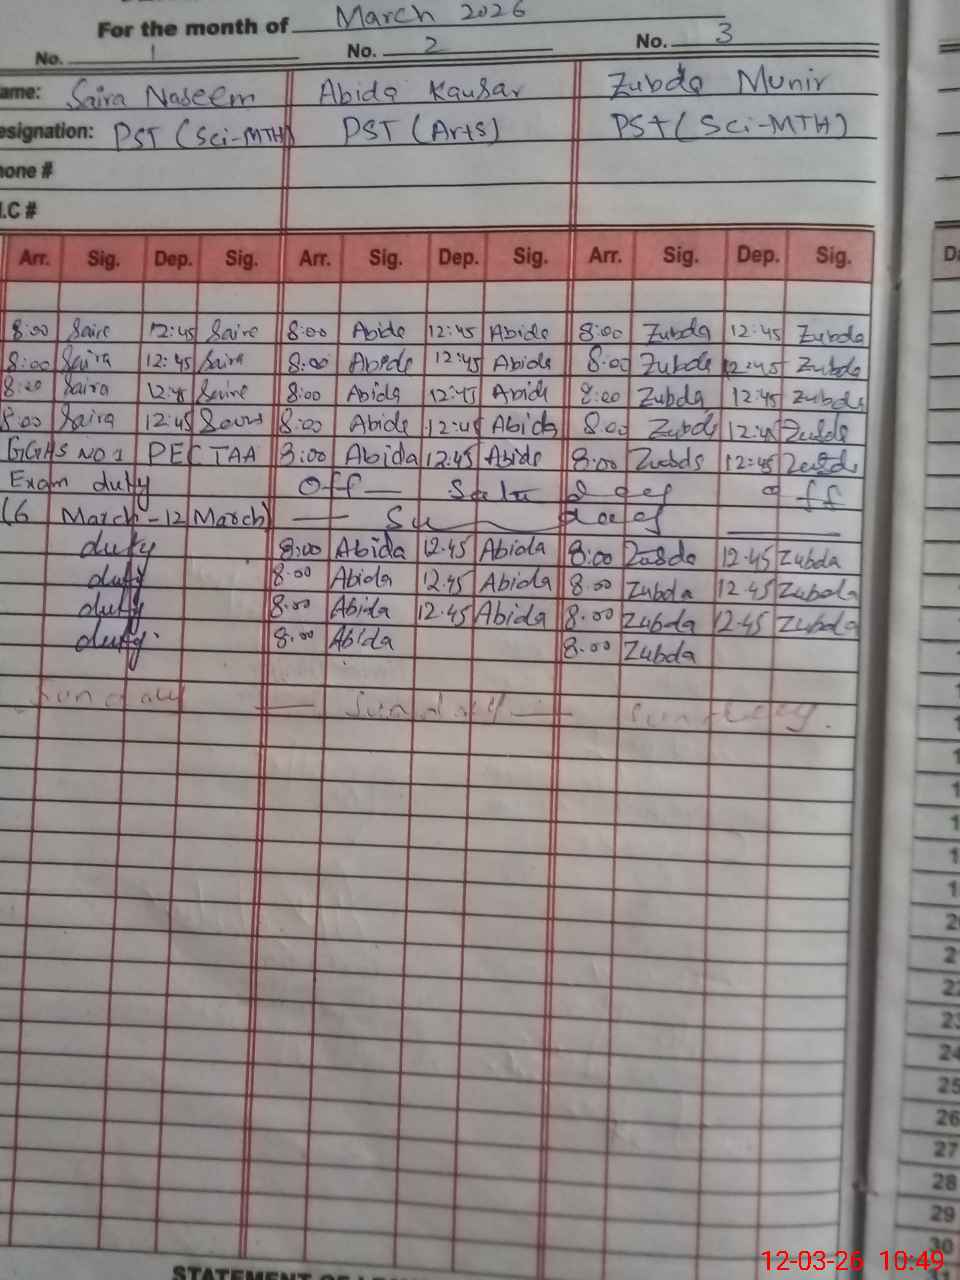 For the month of March 2026
No. 1 No. 2 No. 3
ame: Saira Naseem Abida Kausar Zubda Munir
esignation: PST (Sci-MTH) PST (Arts) PST (Sci-MTH)
hone #
I.C #
Arr. Sig. Dep. Sig. Arr. Sig. Dep. Sig. Arr. Sig. Dep. Sig. Da
8:00 Saira 12:45 Saira 8:00 Abida 12:45 Abida 8:00 Zubda 12:45 Zubda
8:00 Saira 12:45 Saira 8:00 Abida 12:45 Abida 8:00 Zubda 12:45 Zubda
8:00 Saira 12:45 Saira 8:00 Abida 12:45 Abida 8:00 Zubda 12:45 Zubda
8:00 Saira 12:45 8:00 Abida 12:45 Abida 8:00 Zubda 12:45 Zubda
GGHS NO 1 PECTAA 8:00 Abida 12:45 Abida 8:00 Zubda 12:45 Zubda
Exam duty Off off
(6 March - 12 March)
duty 8:00 Abida 12.45 Abida 8:00 Zubda 12.45 Zubda
duty 8.00 Abida 12.45 Abida 8.00 Zubda 12.45 Zubda
duty 8.00 Abida 12.45 Abida 8.00 Zubda 12.45 Zubda
duty. 8.00 Abida 8.00 Zubda
Sunday — Sunday — Sunday.
22
23
24
25
26
27
28
29
30
12-03-26 10:49